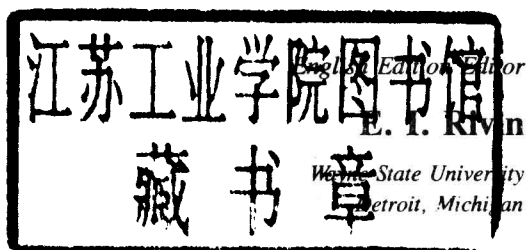 江苏工业学院图书馆
English Edition Editor
E. I. Rivin
藏书章
Wayne State University
Detroit, Michigan